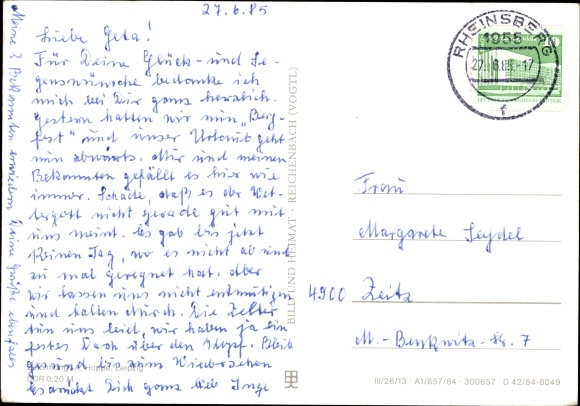 27.6.85
Liebe Geta!
Für Deine Glück- und Se-
genswünsche bedanke ich
mich bei Dir ganz herzlich.
Gestern hatten wir nun „Berg-
fest" und unser Urlaub geht
nun abwärts. Mir und meinen
Bekannten gefällt es hier wie
immer. Schade, daß es der Wet-
tergott nicht gerade gut mit
uns meint. Es gab bis jetzt
keinen Tag, wo es nicht ab und
zu mal geregnet hat. Aber
wir lassen uns nicht entmutigen
und halten durch. Die Zelter
tun uns leid, wir haben ja ein
festes Dach über den Kopf. Bleib
gesund bis zum Wiedersehen
es drückt Dich ganz lieb Inge
Meine 2 Bekannten erwidern Deine Grüße ebenfalls
Hoppe, Leipzig
DDR 0,20 M
BILD UND HEIMAT · REICHENBACH (VOGTL)
RHEINSBERG
1955
27.-6.85-17
f
Frau
Margarete Seydel
4900 Zeitz
M.- Str. 7
III/26/13 · A1/657/84 · 300657 D 42/84-8049